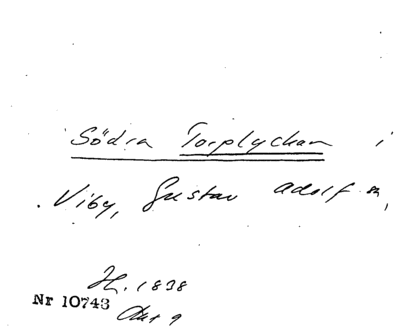 Södra Torplyckan i
Viby, Gustav Adolf sn,
H. 1838
Nr 10743
Akt 9